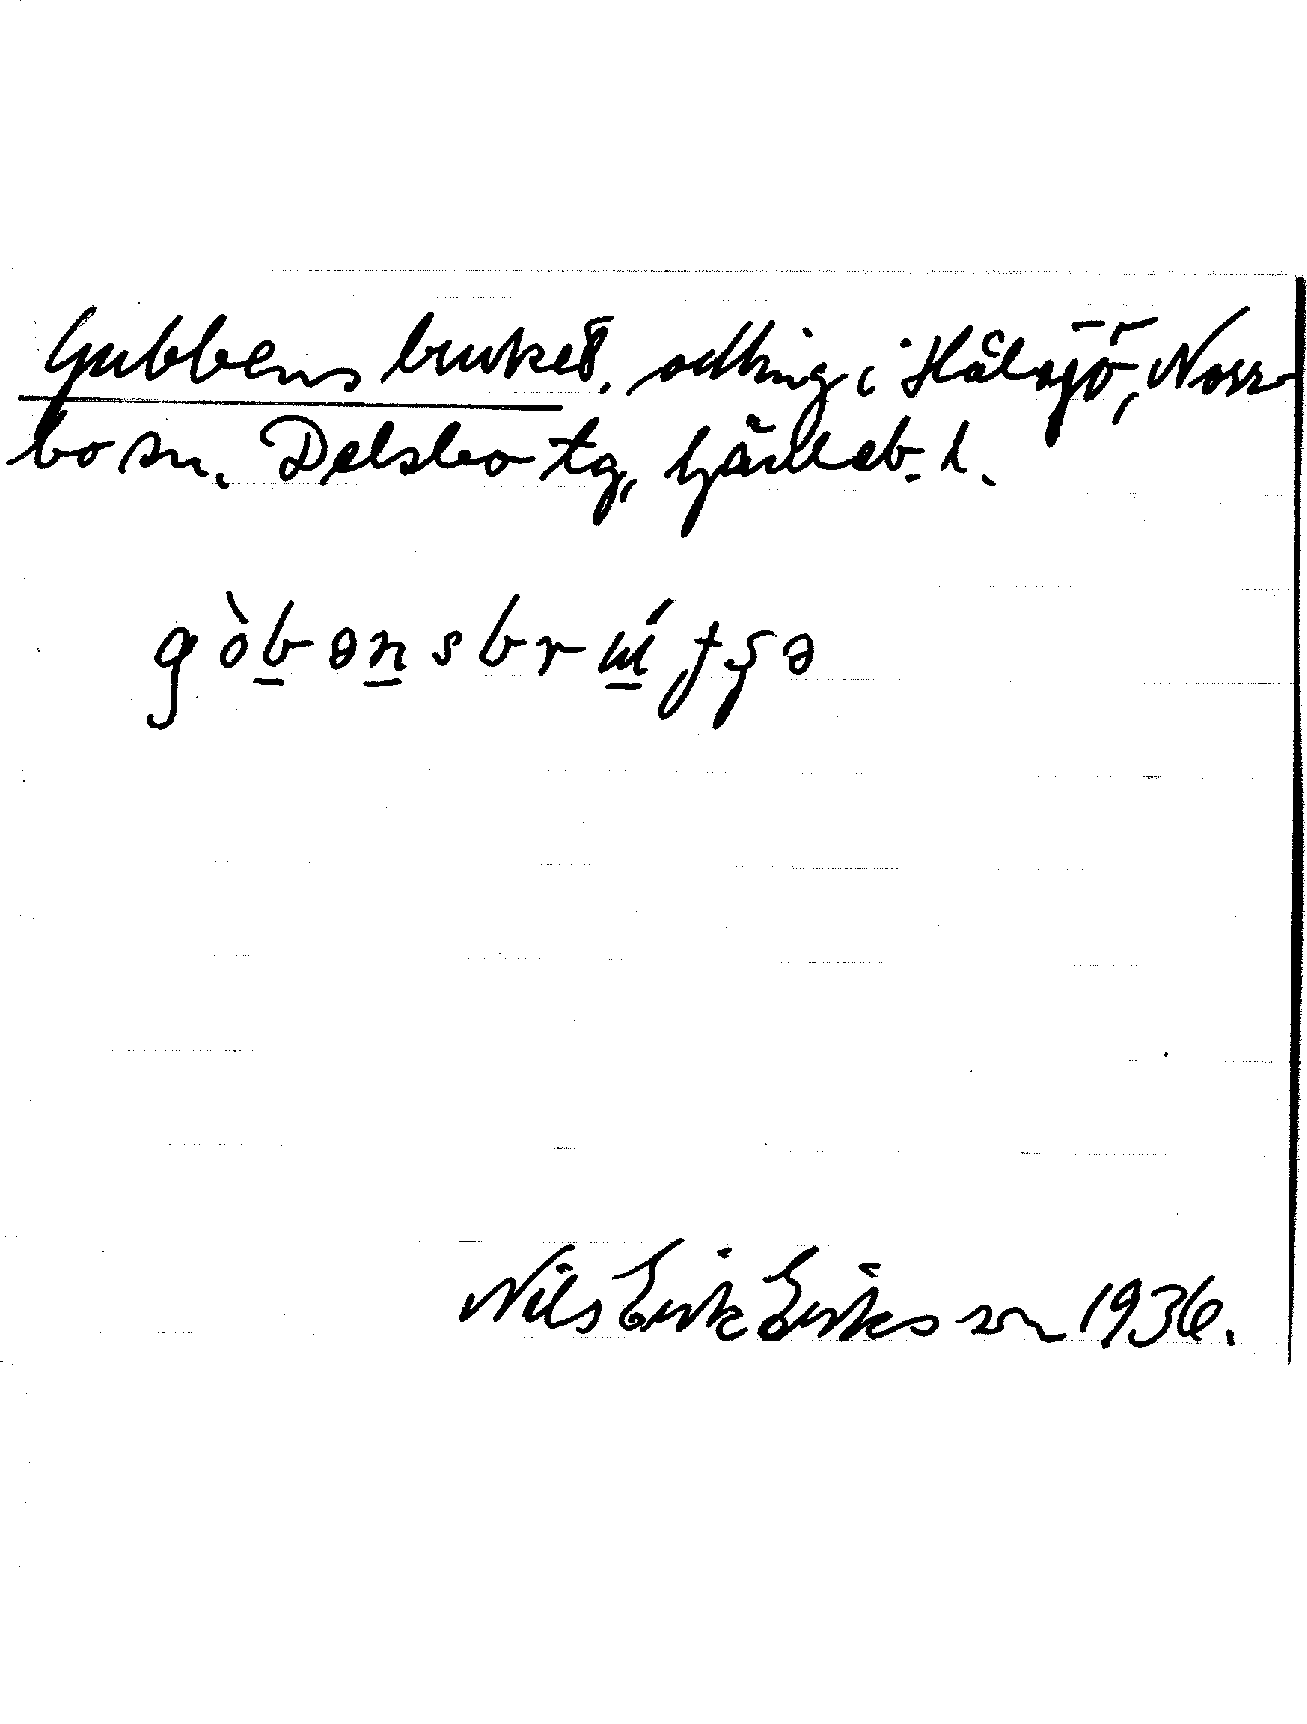 Gubbens bruket, odling i Hålsjö, Norr-
bo sn. Delsbo tg, Gävleb. l.
gòb̲ən̲sbrɯ̲́tʃə
Nils Erik Eriksson 1936.